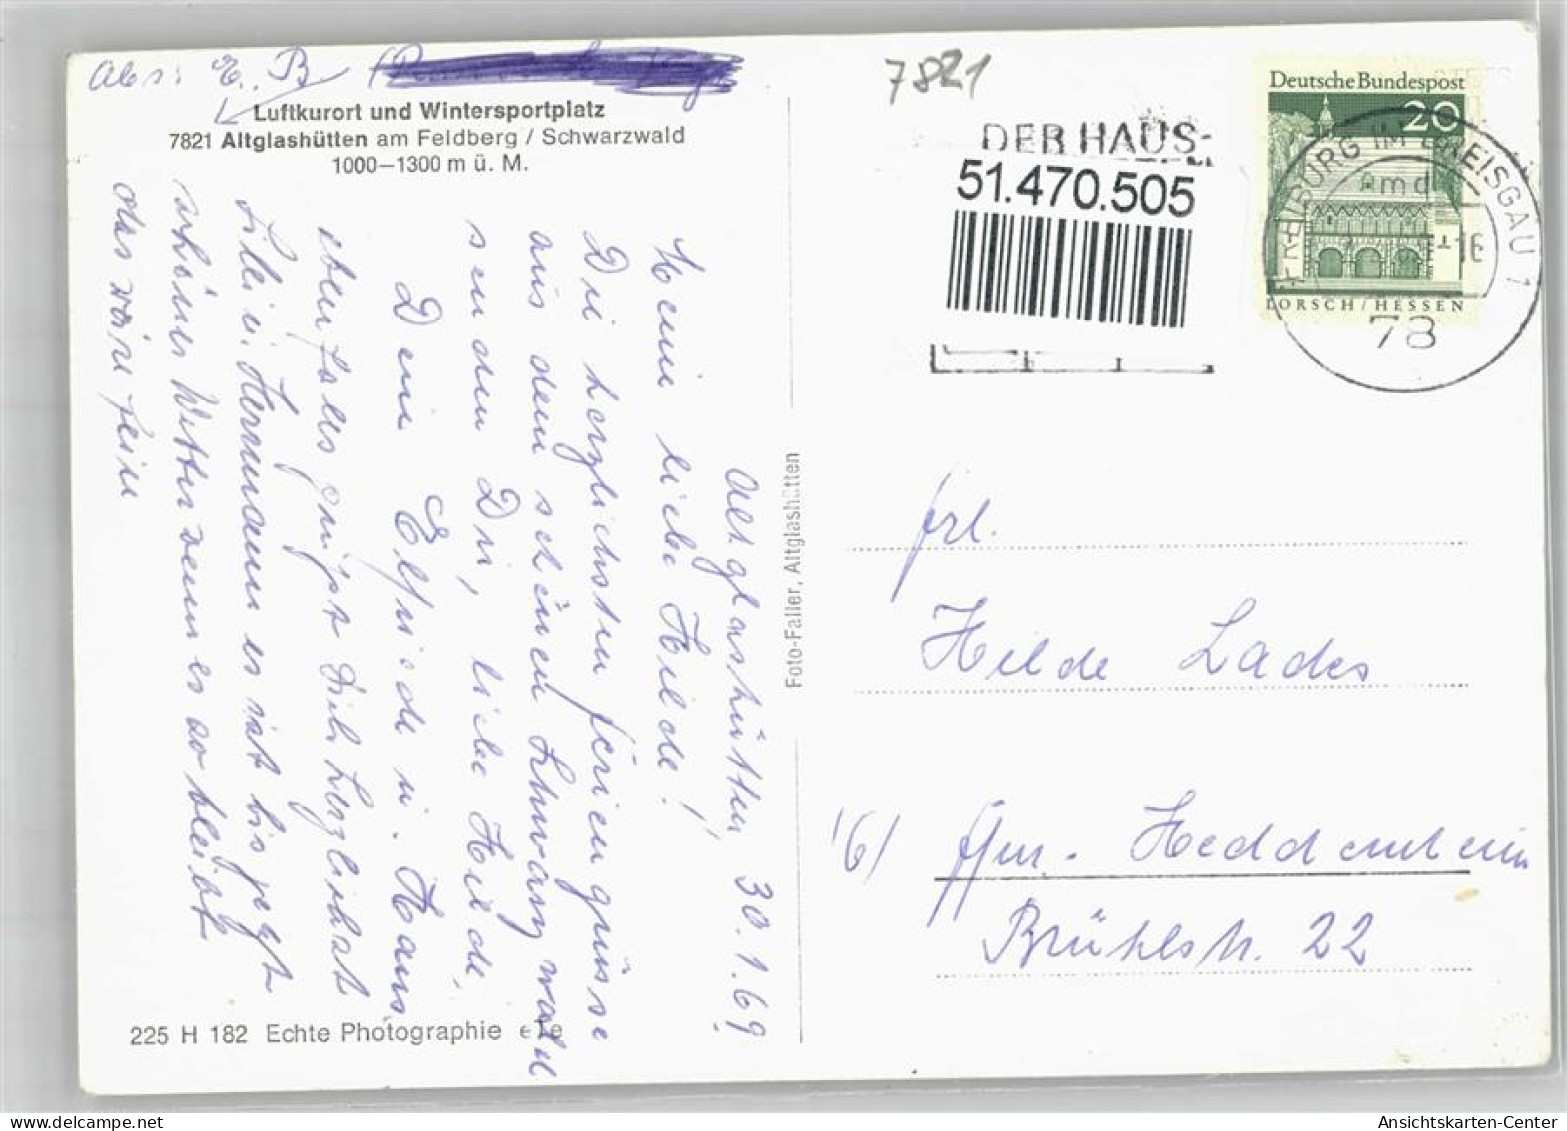 Abs: E. B
Luftkurort und Wintersportplatz
7821 Altglashütten am Feldberg / Schwarzwald
1000–1300 m ü. M.
Altglashütten, 30.1.69.
Meine liebe Hilde!
Die herzlichsten Feriengrüsse
aus dem schönen Schwarzwald
senden Dir, liebe Hilde,
Deine Elfriede u. Hans
ebenfalls grüßt Dich herzlichst
Lilli u. Hermann es ist bis jetzt
schönes Wetter wenn es so bleibt
das wäre fein
225 H 182 Echte Photographie
Foto-Faller, Altglashütten
7821
DER HAUS-
51.470.505
Deutsche Bundespost
20
LORSCH/HESSEN
FREIBURG IM BREISGAU 1
78
Frl.
Hilde Lades
(6) Ffm. Heddernheim
Brühlstr. 22
Ansichtskarten-Center